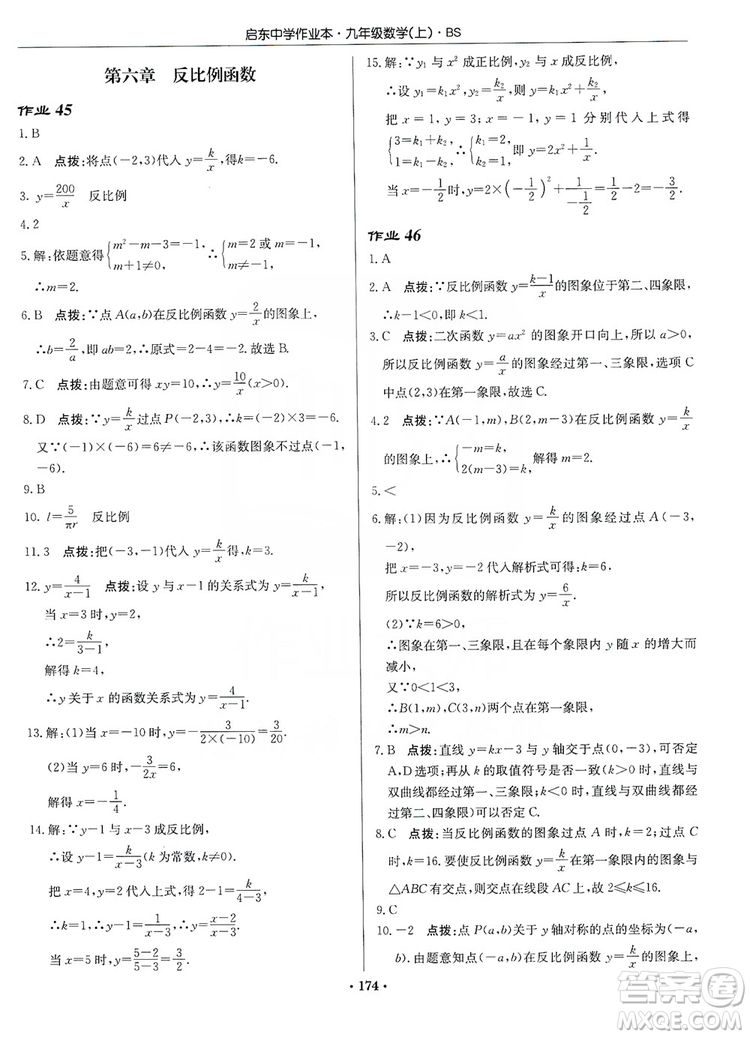 启东中学作业本·九年级数学(上)·BS
第六章 反比例函数
作业 45
1. B
2. A 点拨：将点(-2,3)代入 y=k/x,得k=-6.
3. y=200/x 反比例
4. 2
5. 解：依题意得{m²-m-3=-1, m+1≠0, ∴{m=2或m=-1, m≠-1,
∴m=2.
6. B 点拨：∵点A(a,b)在反比例函数 y=2/x 的图象上，
∴b=2/a,即ab=2,∴原式=2-4=-2.故选B.
7. C 点拨：由题意可得xy=10,∴y=10/x(x>0).
8. D 点拨：∵y=k/x过点P(-2,3),∴k=-2×3=-6.
又∵(-1)×(-6)=6≠-6,∴该函数图象不过点(-1,
-6).
9. B
10. l=5/πr 反比例
11. 3 点拨：把(-3,-1)代入y=k/x得,k=3.
12. y=4/(x-1) 点拨：设y与x-1的关系式为y=k/(x-1).
当x=3时,y=2,
∴2=k/(3-1),
解得k=4.
∴y关于x的函数关系式为y=4/(x-1).
13. 解：(1)当x=-10时,y=-3/(2×(-10))=3/20.
(2)当y=6时,-3/2x=6,
解得x=-1/4.
14. 解：∵y-1与x-3成反比例,
∴设y-1=k/(x-3)(k为常数,k≠0).
把x=4,y=2代入上式,得2-1=k/(4-3),
解得k=1.
∴y=1/(x-3)+1,即y=(x-2)/(x-3).
当x=5时,y=(5-2)/(5-3)=3/2.
15. 解：∵y₁与x²成正比例,y₂与x成反比例,
∴设y₁=k₁x²,y₂=k₂/x,则y=k₁x²+k₂/x.
把x=1,y=3;x=-1,y=1分别代入上式,得
{3=k₁+k₂, 1=k₁-k₂, ∴{k₁=2, k₂=1. ∴y=2x²+1/x.
当x=-1/2时,y=2×(-1/2)²+1/(-1/2)=1/2-2=-3/2.
作业 46
1. A
2. A 点拨：∵反比例函数y=(k-1)/x的图象位于第二、四象限,
∴k-1<0,即k<1.
3. C 点拨：二次函数y=ax²的图象开口向上,所以a>0,
所以反比例函数y=a/x的图象位于第一、三象限,选项C
中点(2,3)符合题意,故选C.
4. 2 点拨：∵A(-1,m),B(2,m-3)在反比例函数y=k/x
的图象上,∴{-m=k, 2(m-3)=k, 解得m=2.
5. <
6. 解：(1)因为反比例函数y=k/x的图象经过点A(-3,
-2),
把x=-3,y=-2代入解析式可得k=6,
所以反比例函数的解析式为y=6/x.
(2)∵k=6>0,
∴图象在第一、三象限,在每个象限内y随x的增大而
减小,
又∵0<1<3,
∴B(1,m),C(3,n)两个点在第一象限,
∴m>n.
7. B 点拨：直线y=kx-3与y轴交于负半轴,可否定
A,D选项;再从k的取值符号是否一致来看,直线与
双曲线都经过第一、三象限(或直线与双曲线都经过
第二、四象限)可以否定C.
8. C 点拨：当反比例函数的图象过点A时,k=2;过点C
时,k=16.要使反比例函数y=k/x在第一象限内的图象与
△ABC有交点,则交点在线段AC上,故2≤k≤16.
9. C
10. -2 点拨：∵点P(a,b)关于y轴对称的点的坐标为(-a,
b).由题意知点(-a,b)在反比例函数y=k/x的图象上,
·174·
答案圈
MXQE.COM